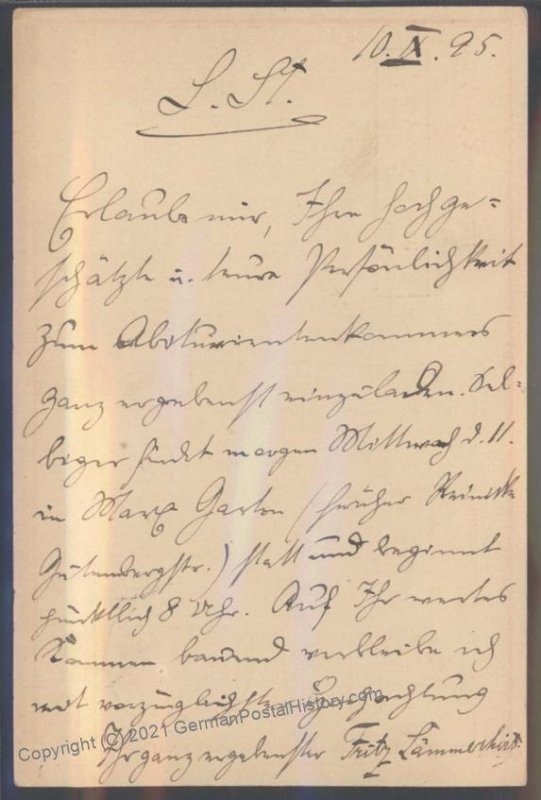 10. IX. 95.
L. St.
Erlaube mir, Ihre hochge-
schätzte u. teure Persönlichkeit
zum Abiturientenkommers
ganz ergebenst einzuladen. Sel-
biger findet morgen Mittwoch d. 11.
in Marx Garten (früher Reinicke
Gutenbergstr.) statt und beginnt
pünktlich 8 Uhr. Auf Ihr wertes
Kommen bauend verbleibe ich
mit vorzüglichster Hochachtung
Ihr ganz ergebenster Fritz Lämmerhirt.
Copyright (C) 2021 GermanPostalHistory.com